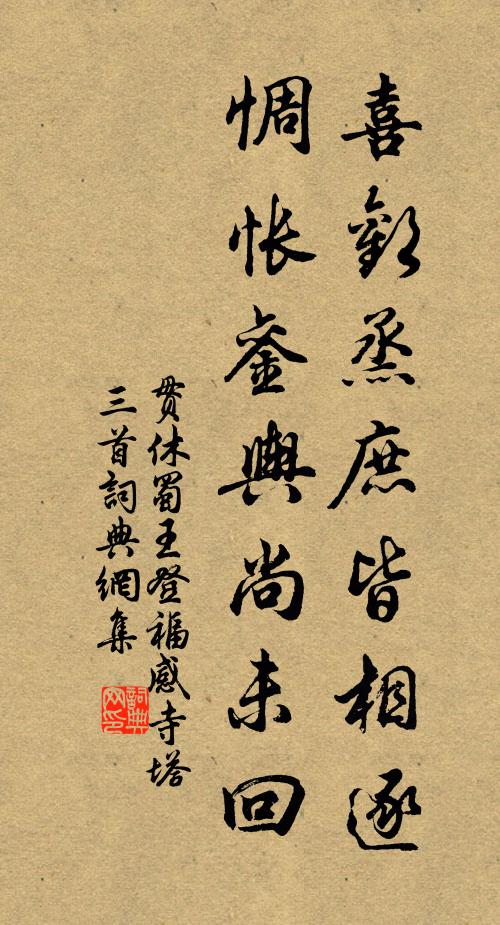 喜歡烝庶皆相逐
惆悵鑾輿尚未回
貫休蜀王登福感寺塔
三首詞典網集
詞典网印